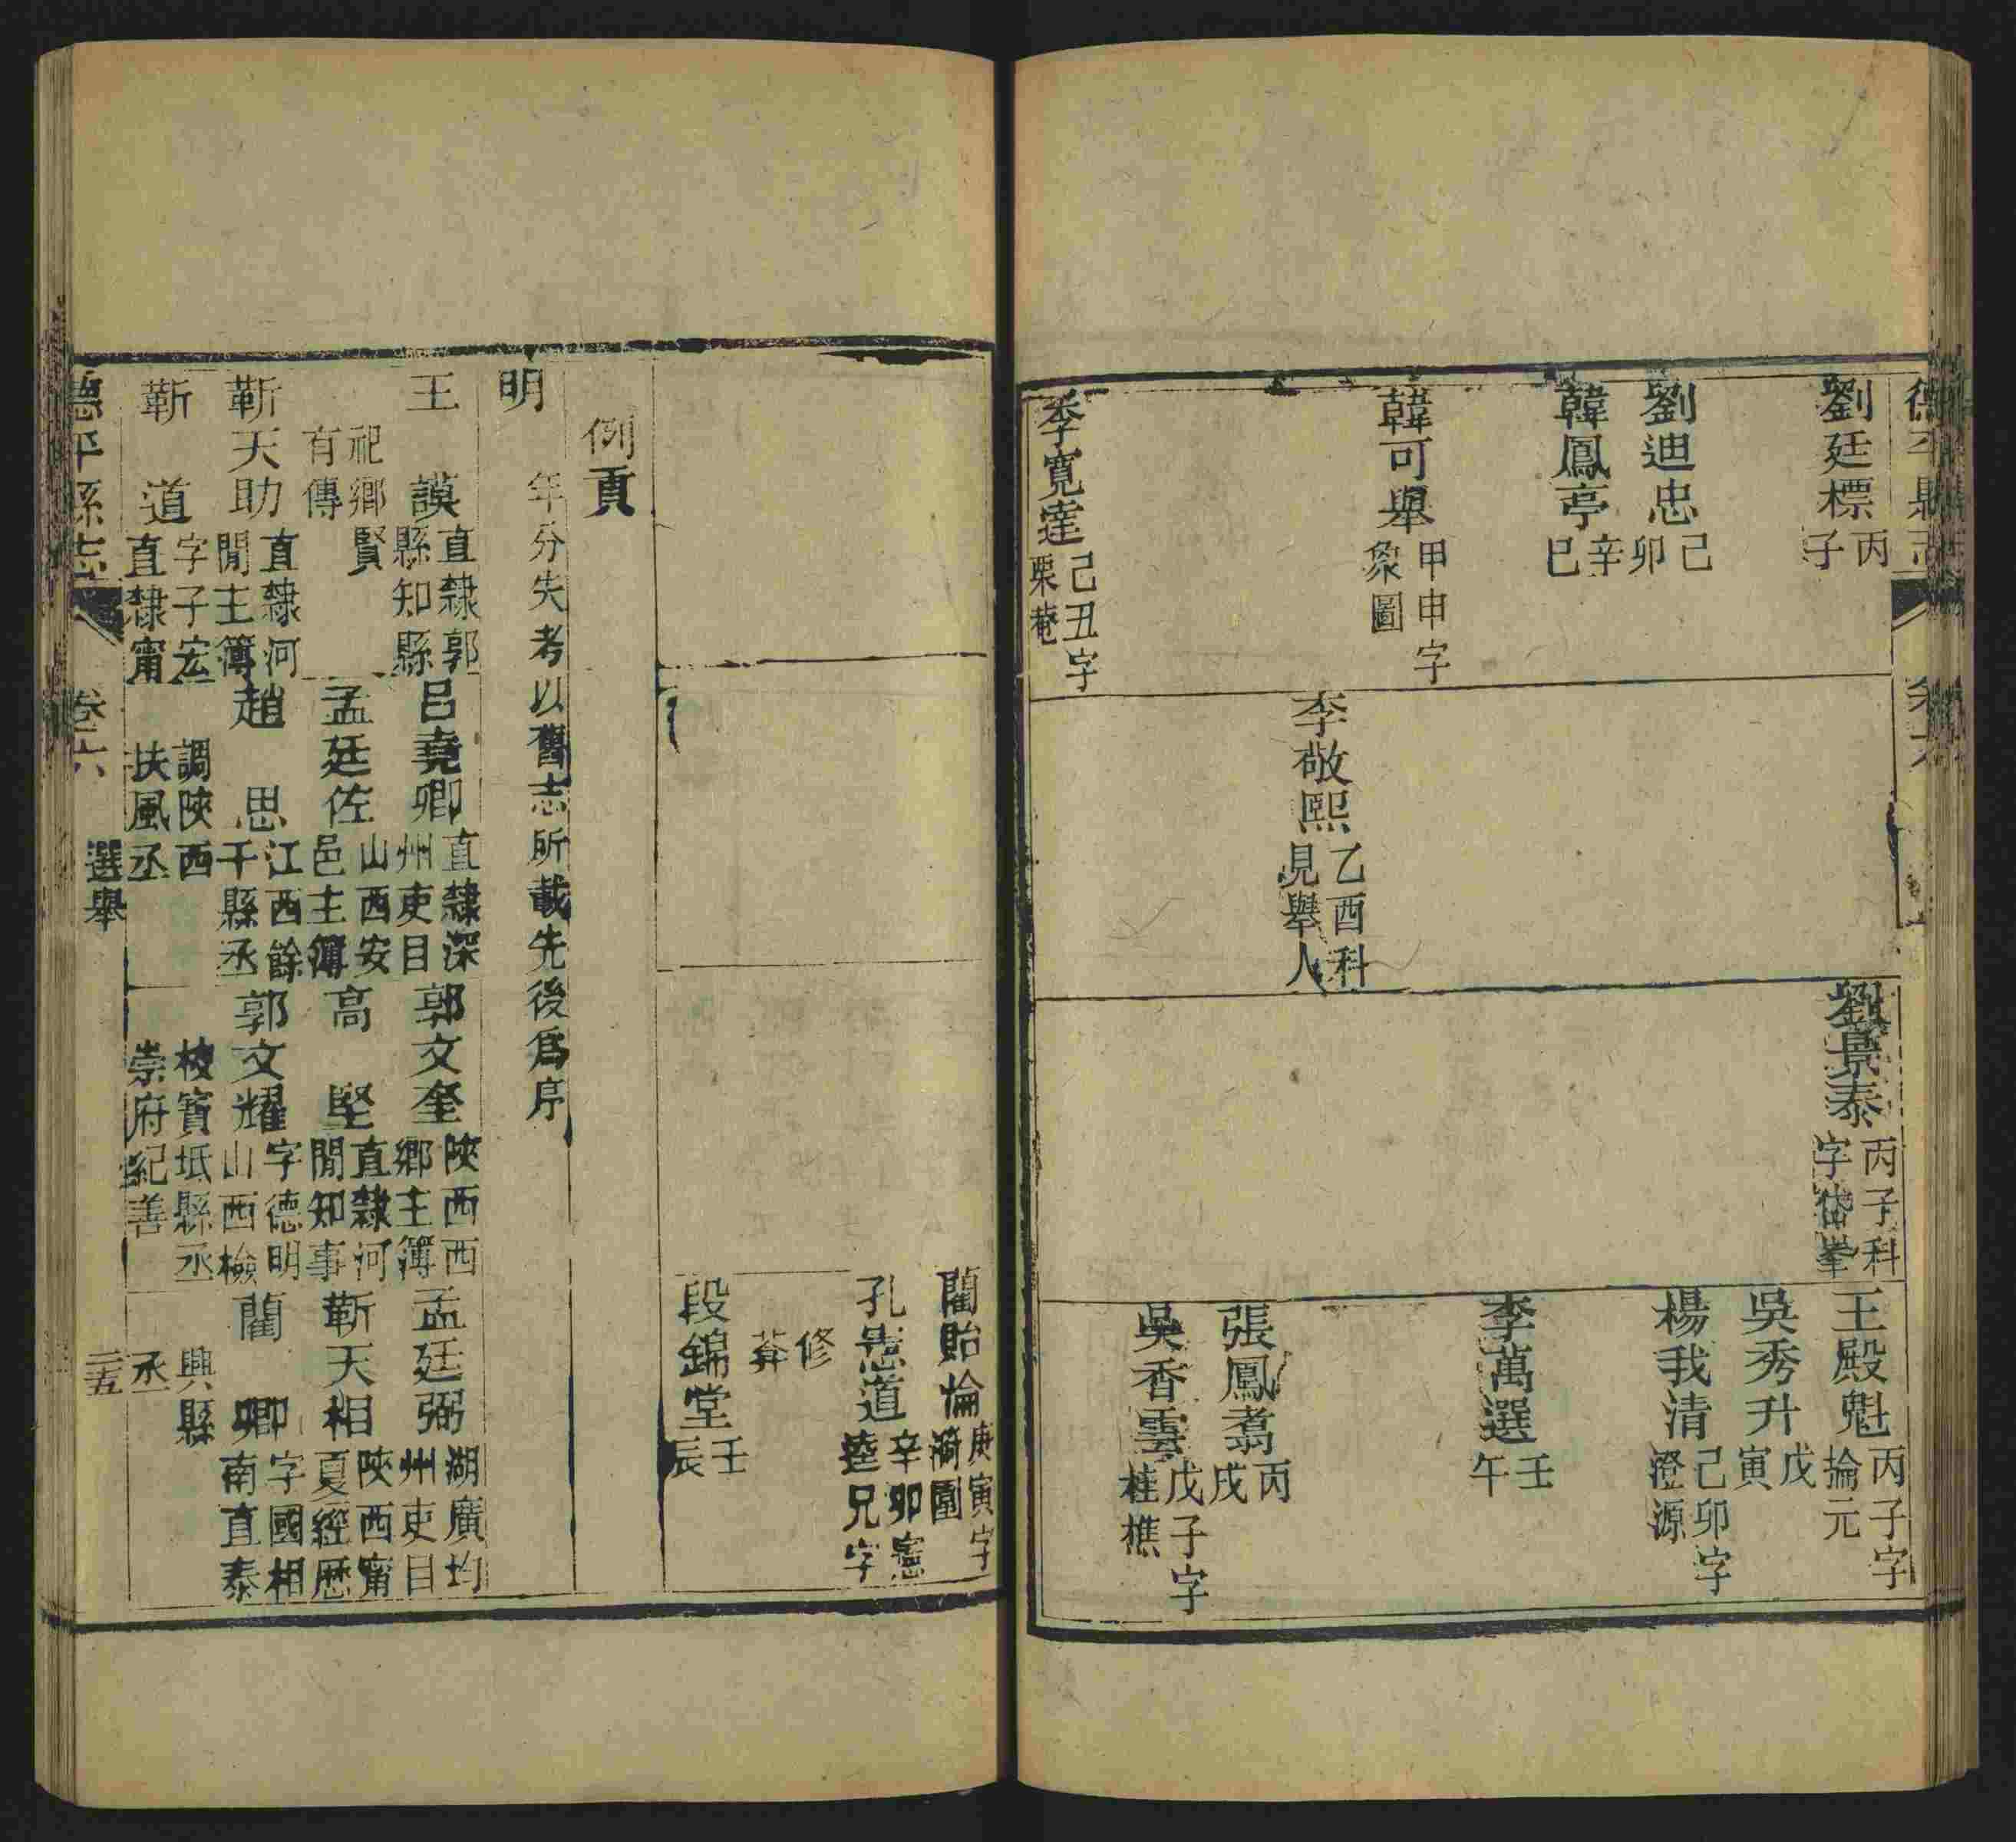 德平縣志
卷六
劉廷標丙子
劉迪忠己卯
韓鳳亭辛巳
韓可舉甲申字象圖
李寬達己丑字栗菴
李敬熙乙酉科見舉人
劉景泰丙子科字岱峯
王殿魁丙子字掄元
吳秀升戊寅
楊我清己卯字澄源
李萬選壬午
張鳳翥丙戌
吳香雲戊子字桂樵
藺貽倫庚寅字漪園
孔憲道辛卯憲逵兄字
修葊
段錦堂壬辰
例貢
年分失考以舊志所載先後爲序
明
王謨直隸郭縣知縣
祀鄉賢有傳
呂堯卿直隸深州吏目
郭文奎陝西西鄉主簿
孟廷弼湖廣均州吏目
孟廷佐山西安邑主簿
高堅直隸河閒知事
靳天相陝西甯夏經歷
靳天助直隸河閒主簿
趙思江西餘干縣丞
郭文耀字德明山西檢
藺卿字國相南直泰
靳道字子宏直隸甯
調陝西扶風丞
校寶坻縣丞崇府紀善
興縣丞
德平縣志
卷六
選舉
二五